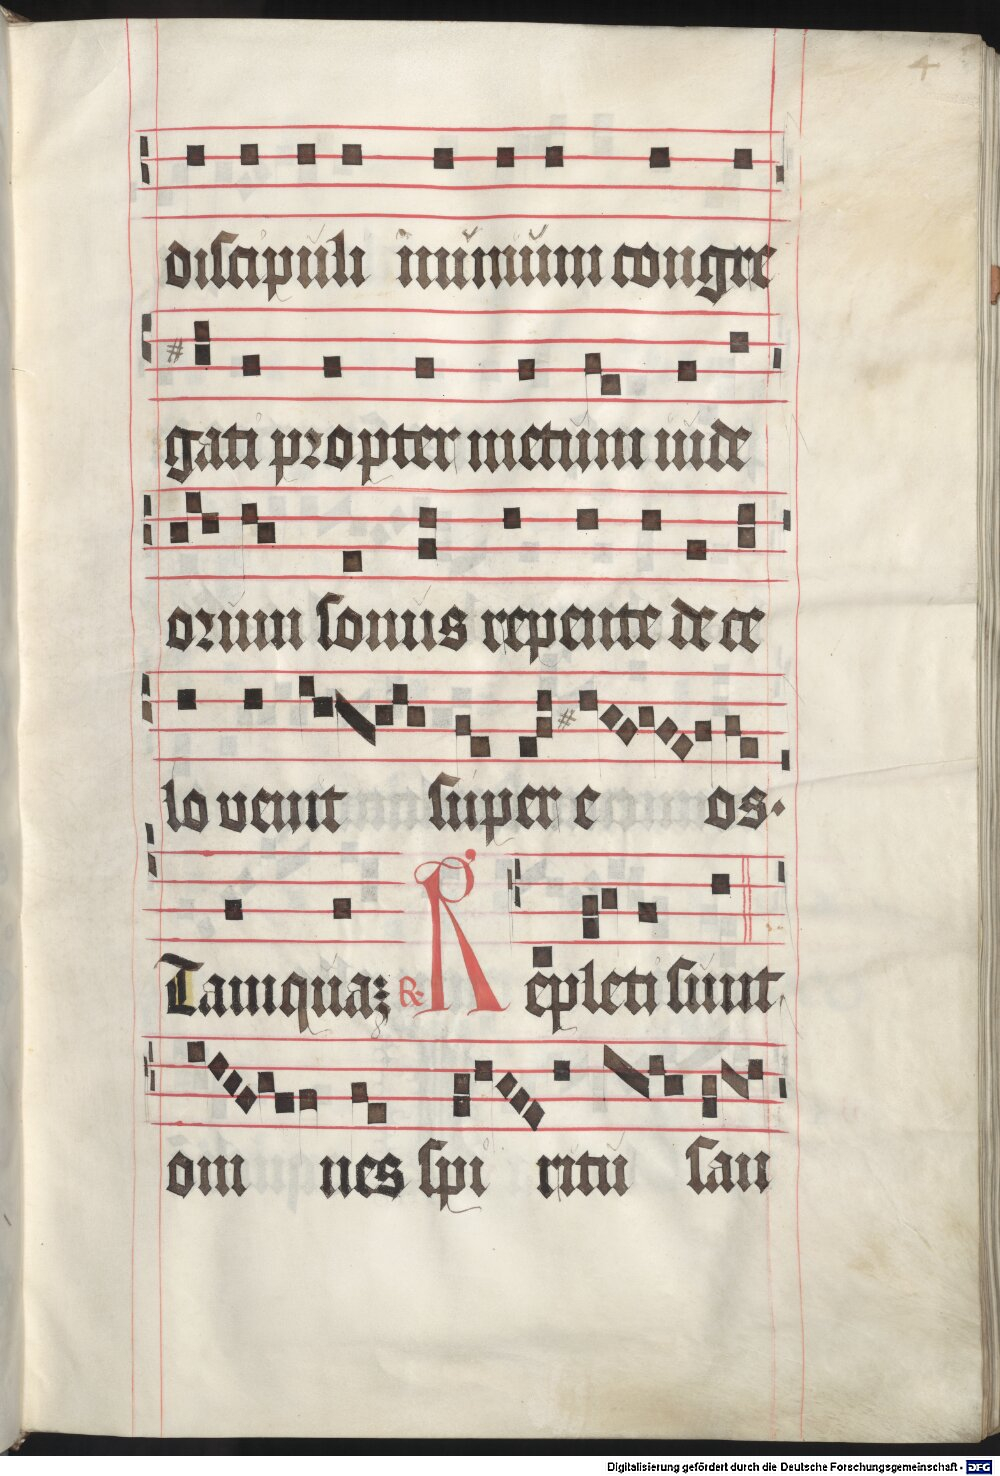 4
discipuli inunum congre
gati propter metum iude
orum sonus repente de ce
lo venit super e os.
Tamquaʒ R Repleti sunt
om nes spi ritu san
Digitalisierung gefördert durch die Deutsche Forschungsgemeinschaft - DFG